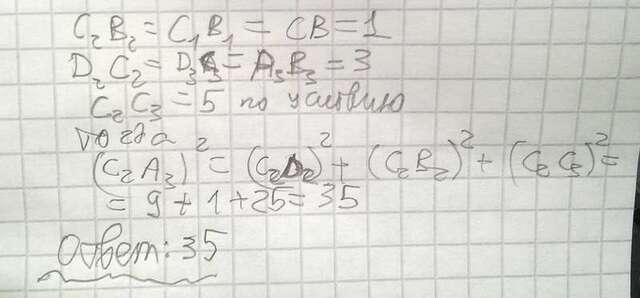 C₂B₂ = C₁B₁ = CB = 1
D₂C₂ = D₃C₃ = A₃B₃ = 3
C₂C₃ = 5 по условию
тогда
(C₂A₃)² = (C₂D₂)² + (C₂B₂)² + (C₂C₃)² =
= 9 + 1 + 25 = 35
Ответ: 35